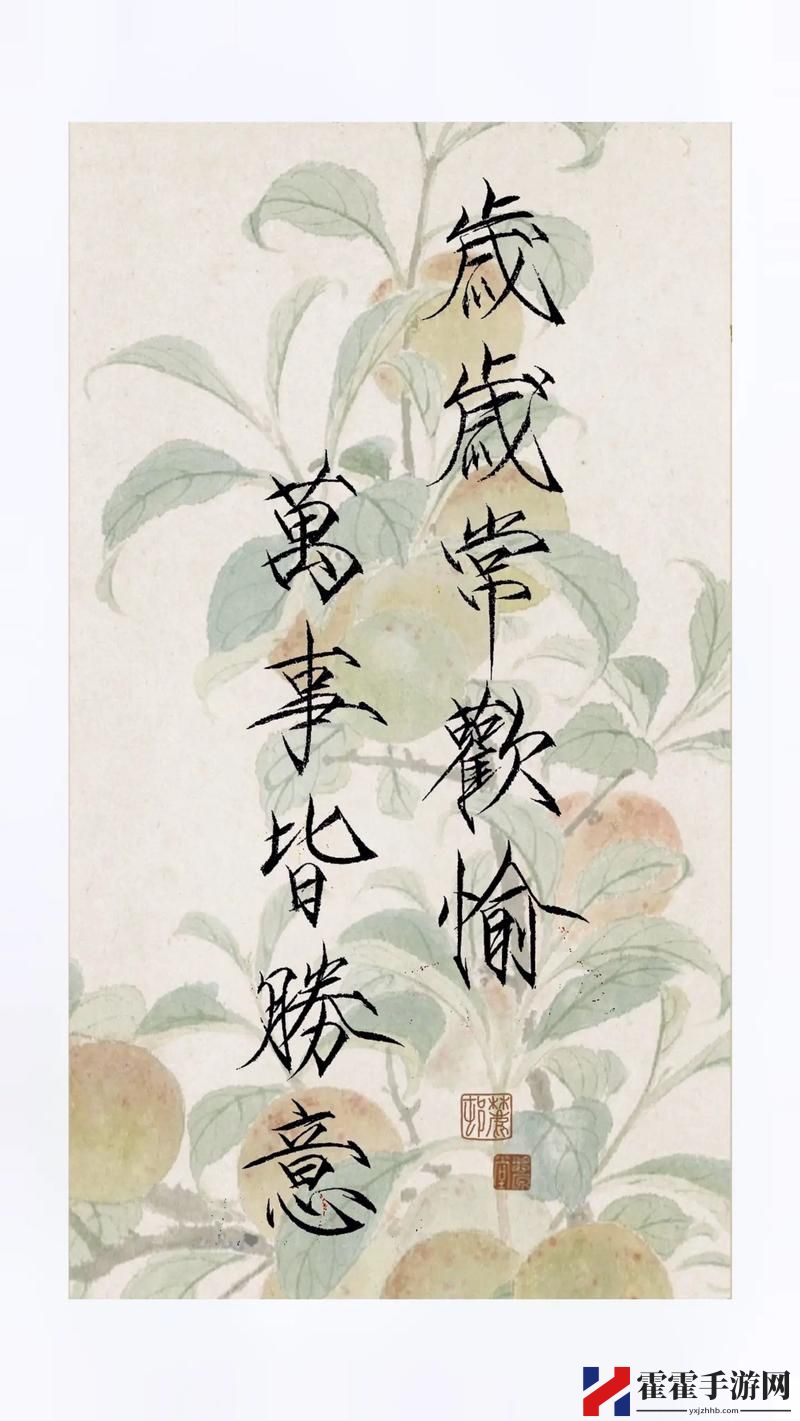 歲歲常歡愉
萬事皆勝意
霍霍手游网
yxjzhhb.com